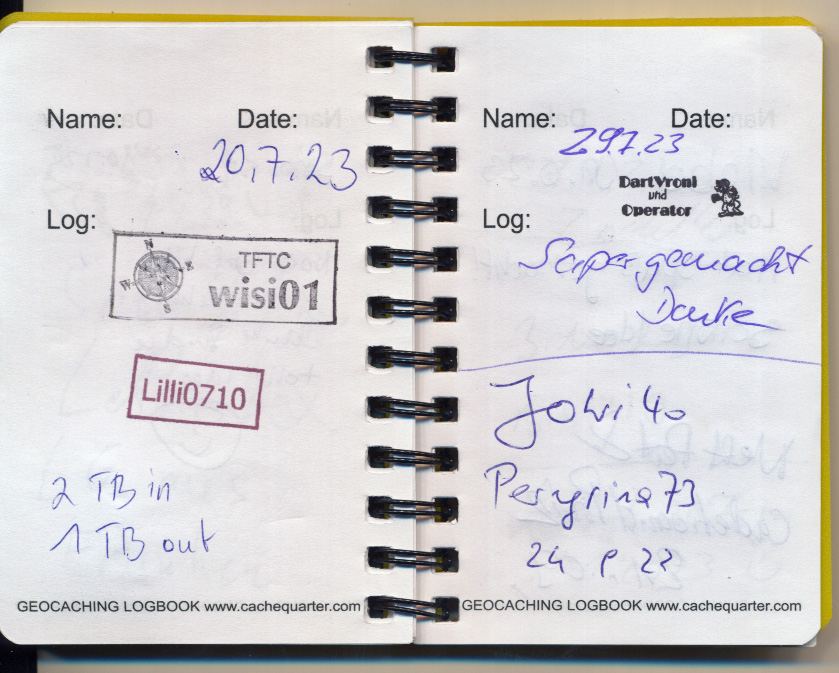 Name: Date:
20.7.23
Log:
N
W E
S
TFTC
wisi01
Lilli0710
2 TB in
1 TB out
GEOCACHING LOGBOOK www.cachequarter.com
Name: Date:
29.7.23
DartVroni
und
Operator
Log:
Super gemacht
Danke
Jowi 40
Peregrina73
GEOCACHING LOGBOOK www.cachequarter.com